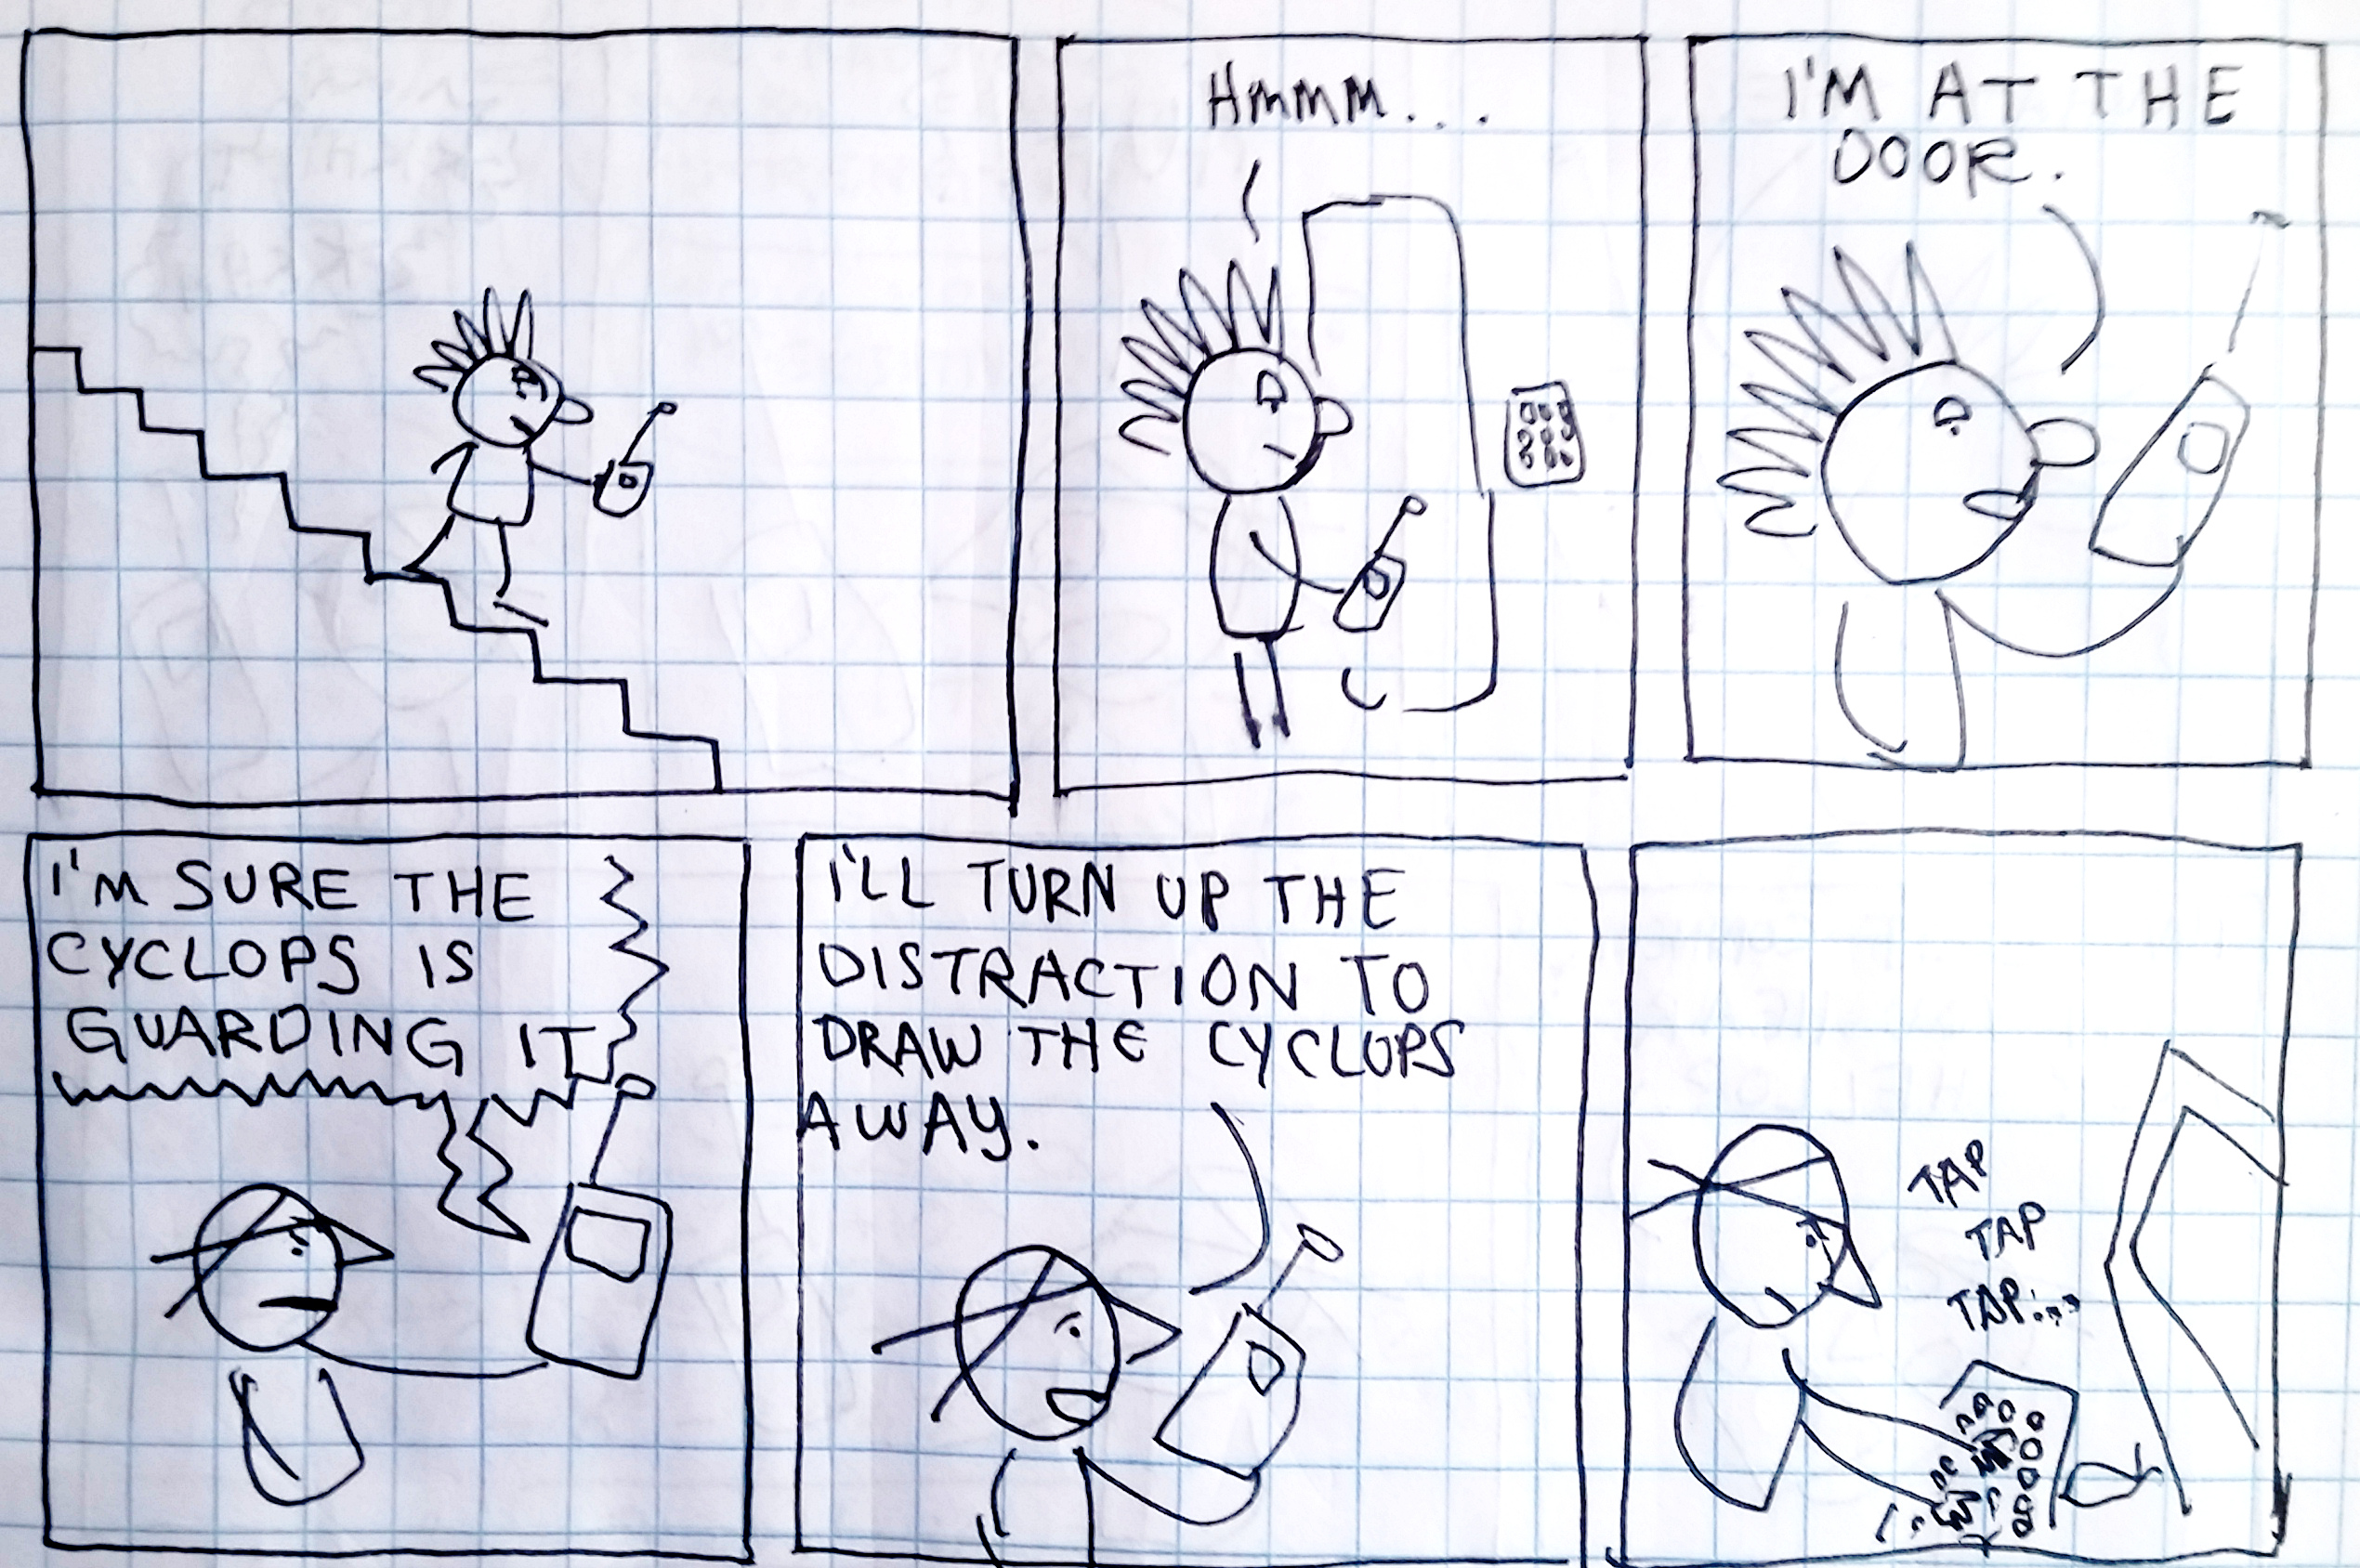 Hmmm...
I'M AT THE
DOOR.
I'M SURE THE
CYCLOPS IS
GUARDING IT
I'LL TURN UP THE
DISTRACTION TO
DRAW THE CYCLOPS
AWAY.
TAP
TAP
TAP...